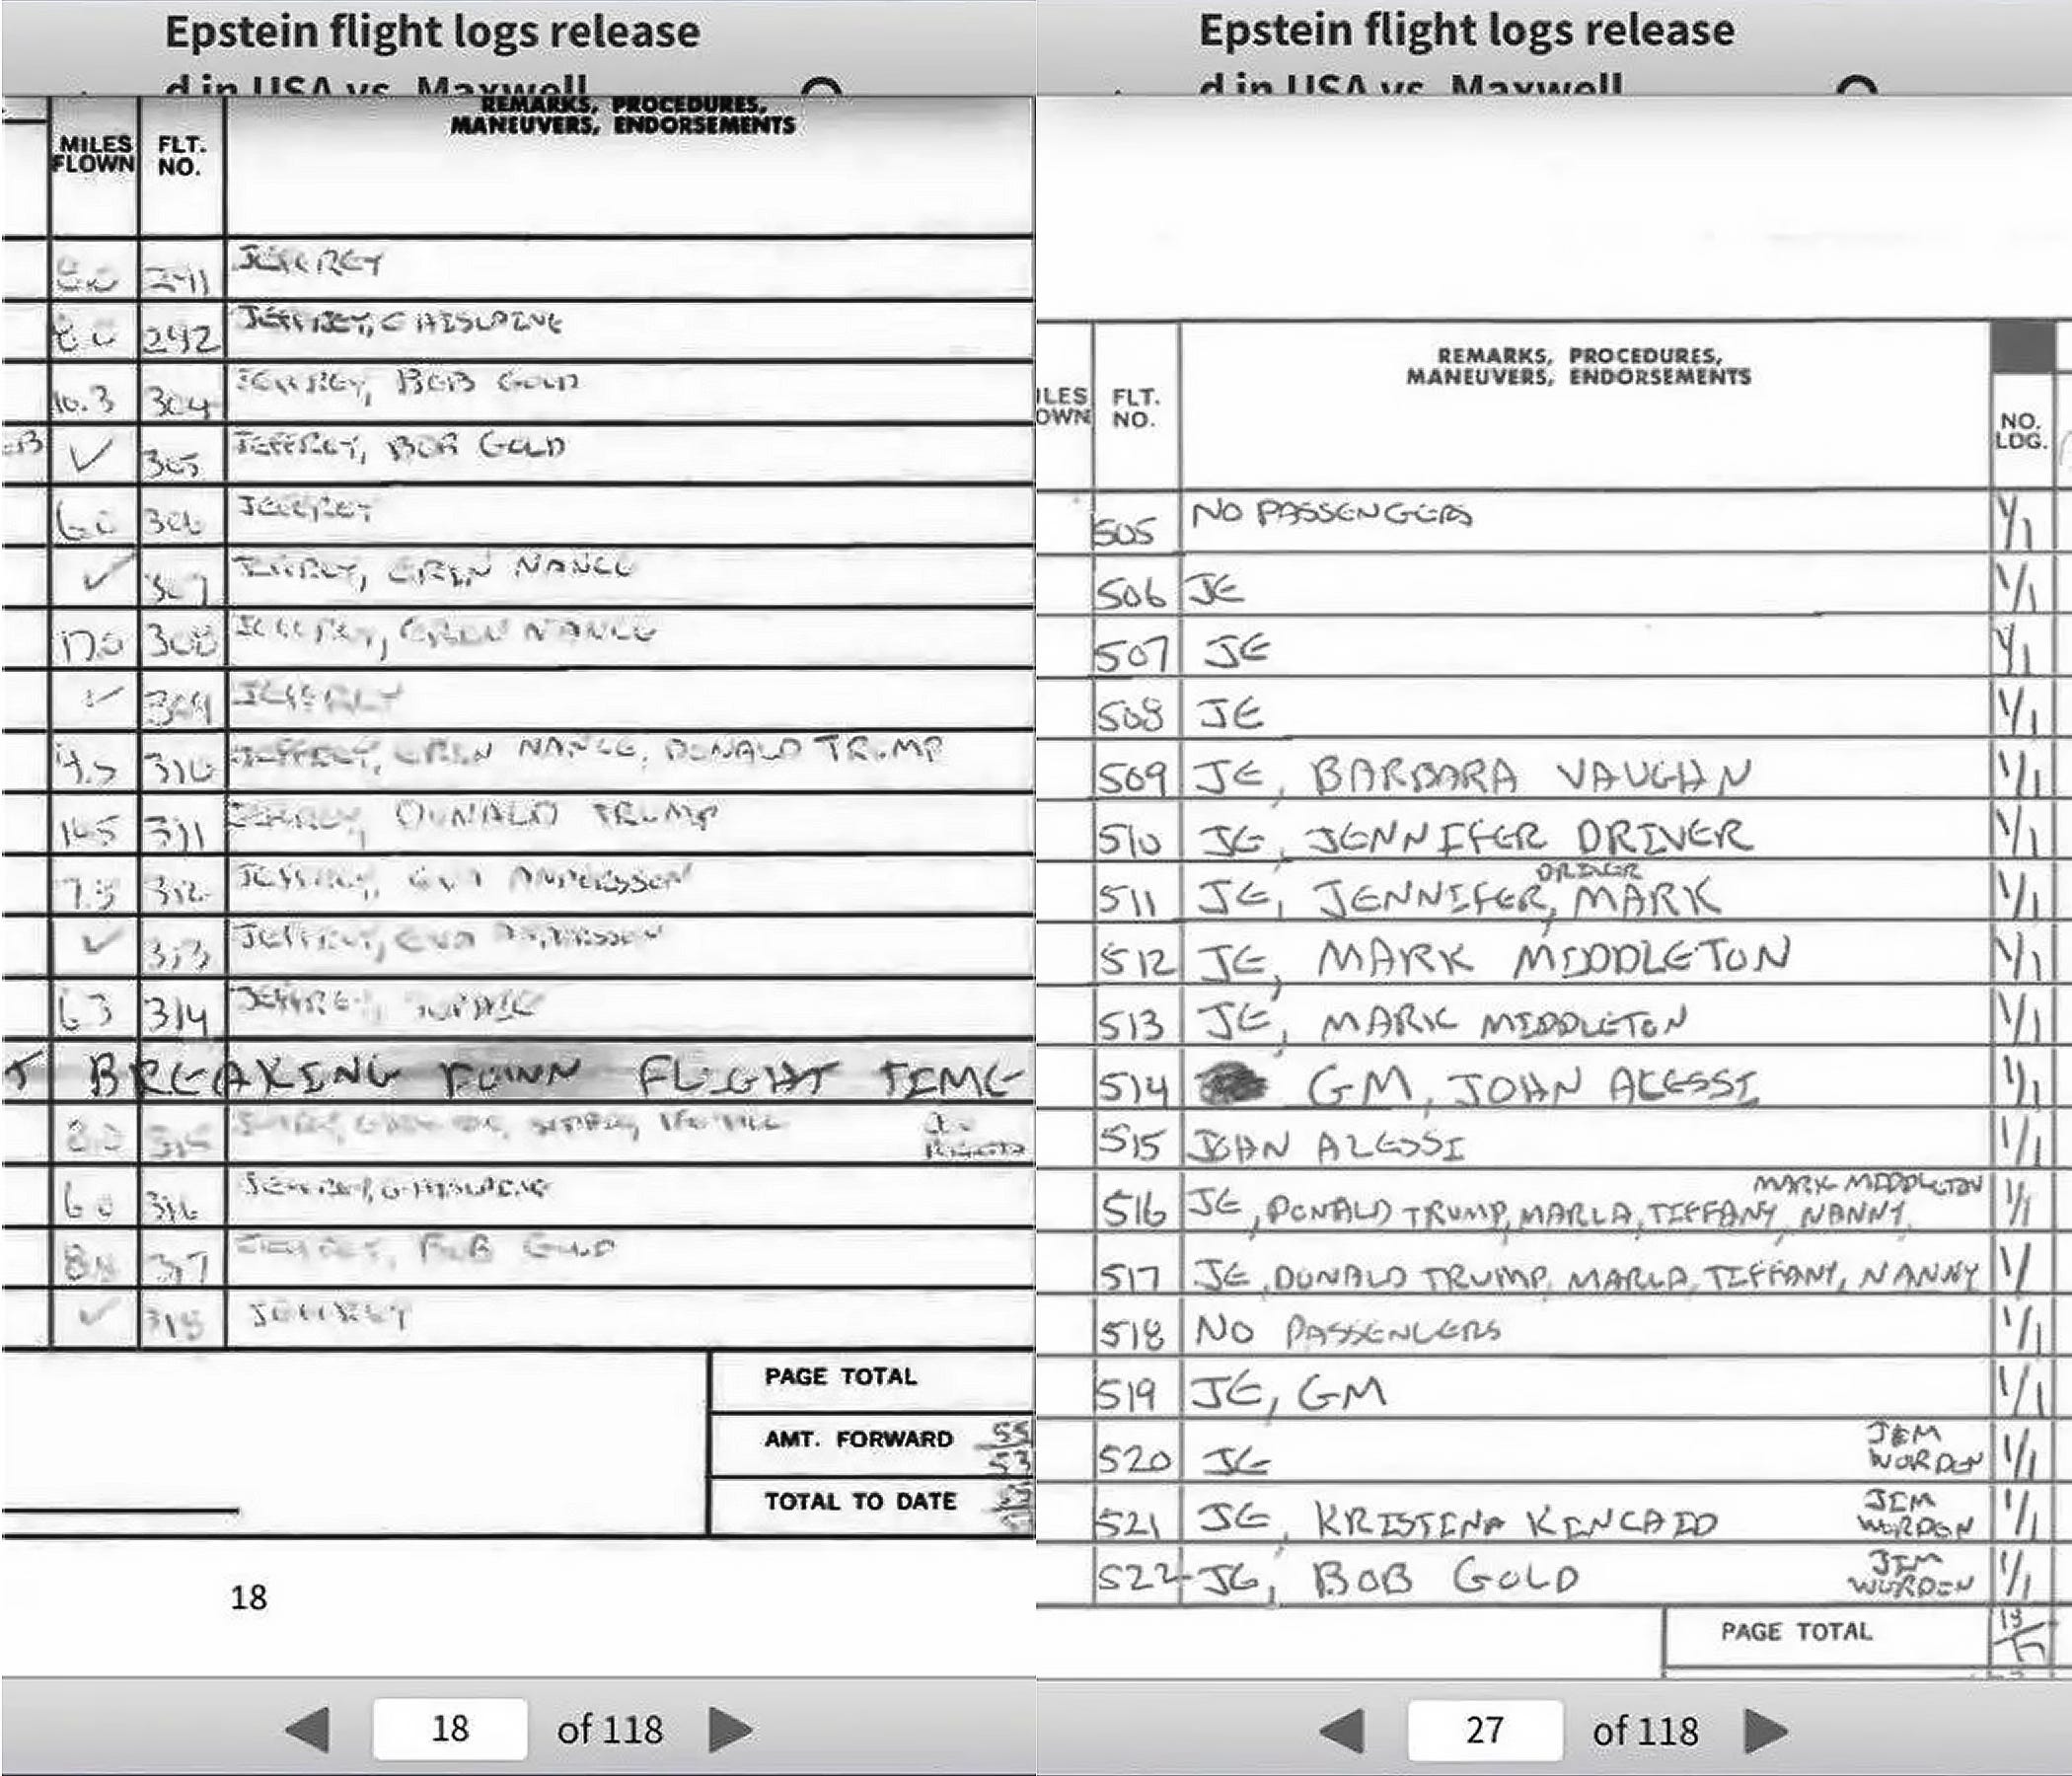 Epstein flight logs release
d in USA vs. Maxwell
REMARKS, PROCEDURES,
MANEUVERS, ENDORSEMENTS
MILES
FLOWN
FLT.
NO.
241 JEFFREY
242 JEFFREY, GHISLAINE
10.3 304 JEFFREY, BOB GOLD
305 JEFFREY, BOB GOLD
60 306 JEFFREY
307 JEFFREY, GREN NANCE
308 JEFFREY, GREN NANCE
309 JEFFREY
310 JEFFREY, GREN NANCE, DONALD TRUMP
311 JEFFREY, DONALD TRUMP
312 JEFFREY, EVA ANDERSSON
313 JEFFREY, EVA ANDERSSON
63 314 JEFFREY, SOPHIE
BREAKING DOWN FLIGHT TIME
315
60 316 JEFFREY, GHISLAINE
317 JEFFREY, BOB GOLD
318 JEFFREY
PAGE TOTAL
AMT. FORWARD
TOTAL TO DATE
18
18 of 118
Epstein flight logs release
d in USA vs. Maxwell
ILES
OWN
FLT.
NO.
REMARKS, PROCEDURES,
MANEUVERS, ENDORSEMENTS
NO.
LDG.
505 NO PASSENGERS 1/1
506 JE 1/1
507 JE 1/1
508 JE 1/1
509 JE, BARBARA VAUGHN 1/1
510 JE, JENNIFER DRIVER 1/1
DRIVER
511 JE, JENNIFER, MARK 1/1
512 JE, MARK MIDDLETON 1/1
513 JE, MARK MIDDLETON 1/1
514 GM, JOHN ALESSI 1/1
515 JOHN ALESSI 1/1
MARK MIDDLETON
516 JE, DONALD TRUMP, MARLA, TIFFANY, NANNY, 1/1
517 JE, DONALD TRUMP, MARLA, TIFFANY, NANNY 1/
518 NO PASSENGERS 1/1
519 JE, GM 1/1
520 JE JIM WORDEN 1/1
521 JE, KRISTINA KINCAID JIM WORDEN 1/1
522 JE, BOB GOLD JIM WORDEN 1/1
PAGE TOTAL
27 of 118